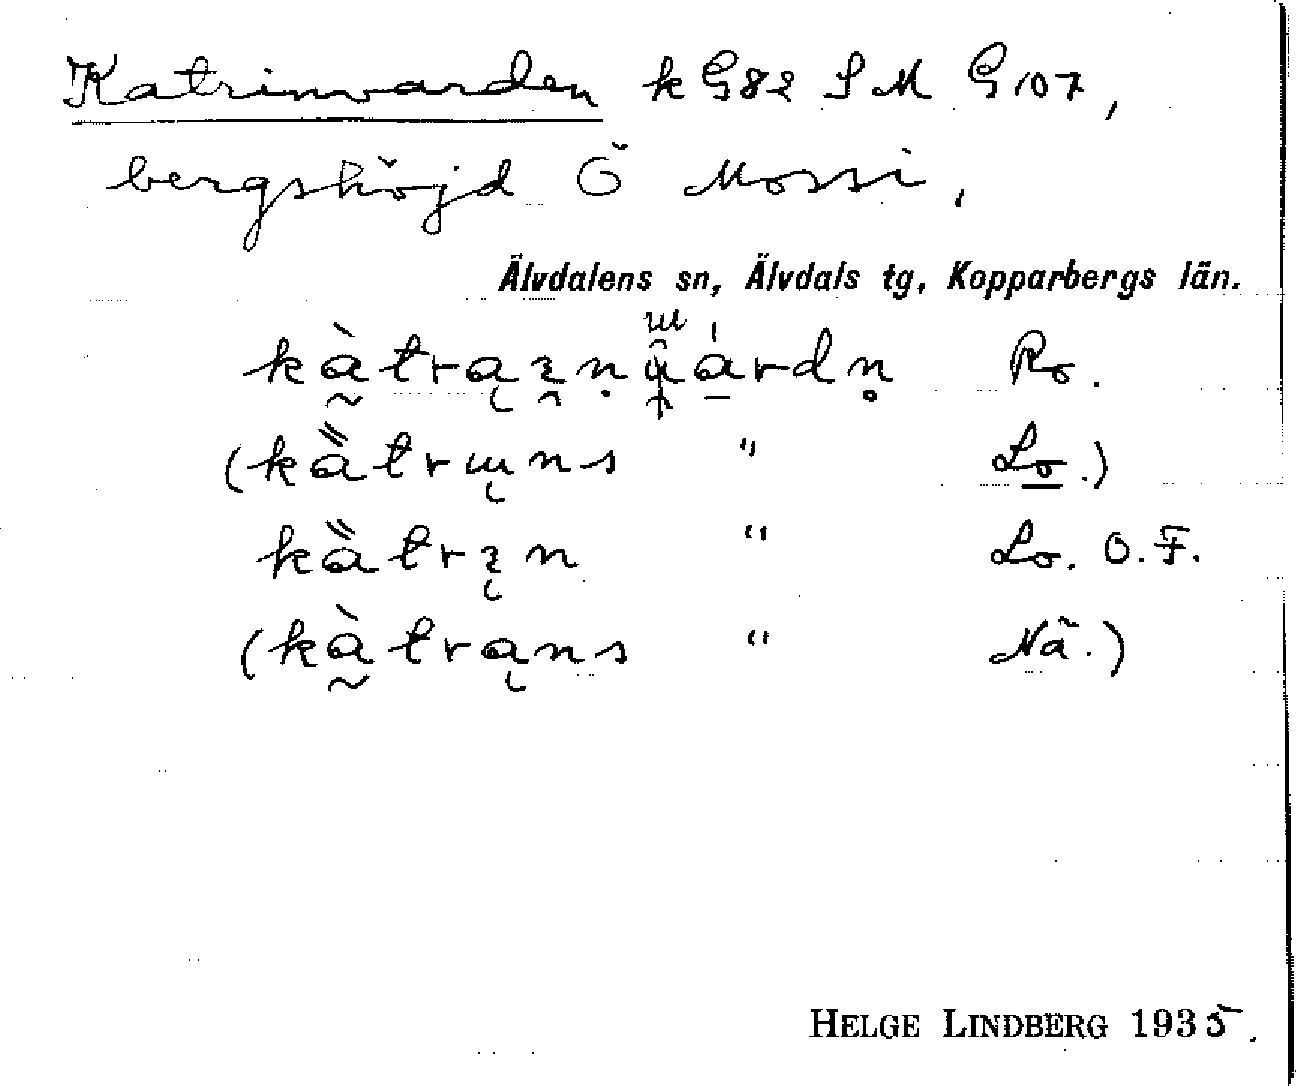 Katrinvarden k G82 S M G107,
bergshöjd Ö Mossi,
Älvdalens sn, Älvdals tg, Kopparbergs län.
Ro.
( " Lo.)
" Lo. O.F.
( " Nä.)
HELGE LINDBERG 1935.